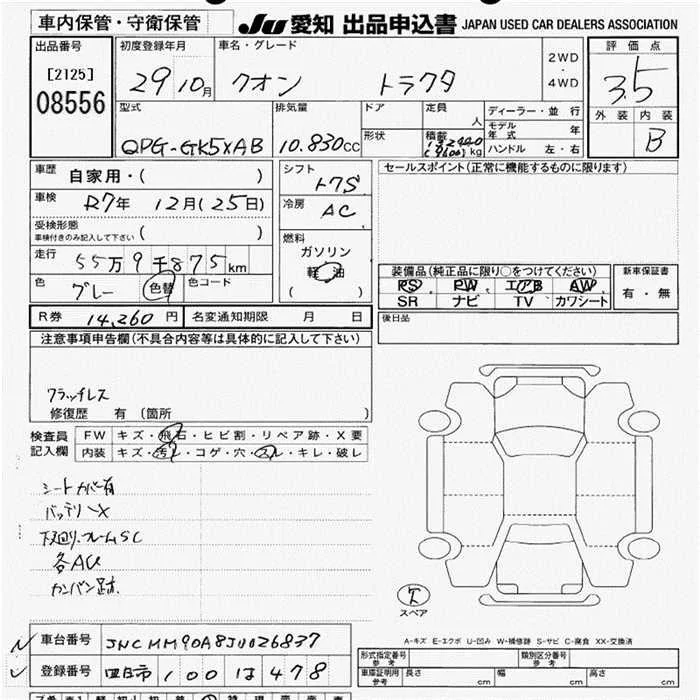 車内保管・守衛保管
JU 愛知 出品申込書 JAPAN USED CAR DEALERS ASSOCIATION
出品番号 [2125] 08556
初度登録年月 29 10月
車名・グレード クオン トラクタ
2WD・4WD
評価点 3.5
外装 内装 B
型式 QPG-GK5XAB
排気量 10.830cc
ドア 形状
定員 人
積載 kg
ディーラー・並行
モデル年式 年
ハンドル 左・右
車歴 自家用・( )
車検 R7年 12月(25日)
受検形態 車検付きのみ記入して下さい ( )
走行 55万9千875km
色 グレー 色替 色コード
シフト 7S
冷房 AC
燃料 ガソリン 軽油 ( )
セールスポイント(正常に機能するものに限ります)
装備品(純正品に限り○をつけてください)
PS PW エアB AW
SR ナビ TV カワシート
新車保証書 有・無
R券 14,260円 名変通知期限 月 日
後日品
注意事項申告欄(不具合内容等は具体的に記入して下さい)
クラッチレス
修復歴 有 (箇所 )
検査員記入欄
FW キズ・飛石・ヒビ割・リペア跡・X要
内装 キズ・汚レ・コゲ・穴・スレ・キレ・破レ
シートカバー有
バッテリーX
下廻り、フレームSC
各AU
カンバン跡
スペア
A-キズ E-エクボ U-凹み W-補修跡 S-サビ C-腐食 XX-交換済
車台番号 JNCMM90A8JU026837
登録番号 四日市 100 は 478
形式指定番号 参考 類別区分番号 参考
車庫証明用 参考 長さ cm 幅 cm 高さ cm